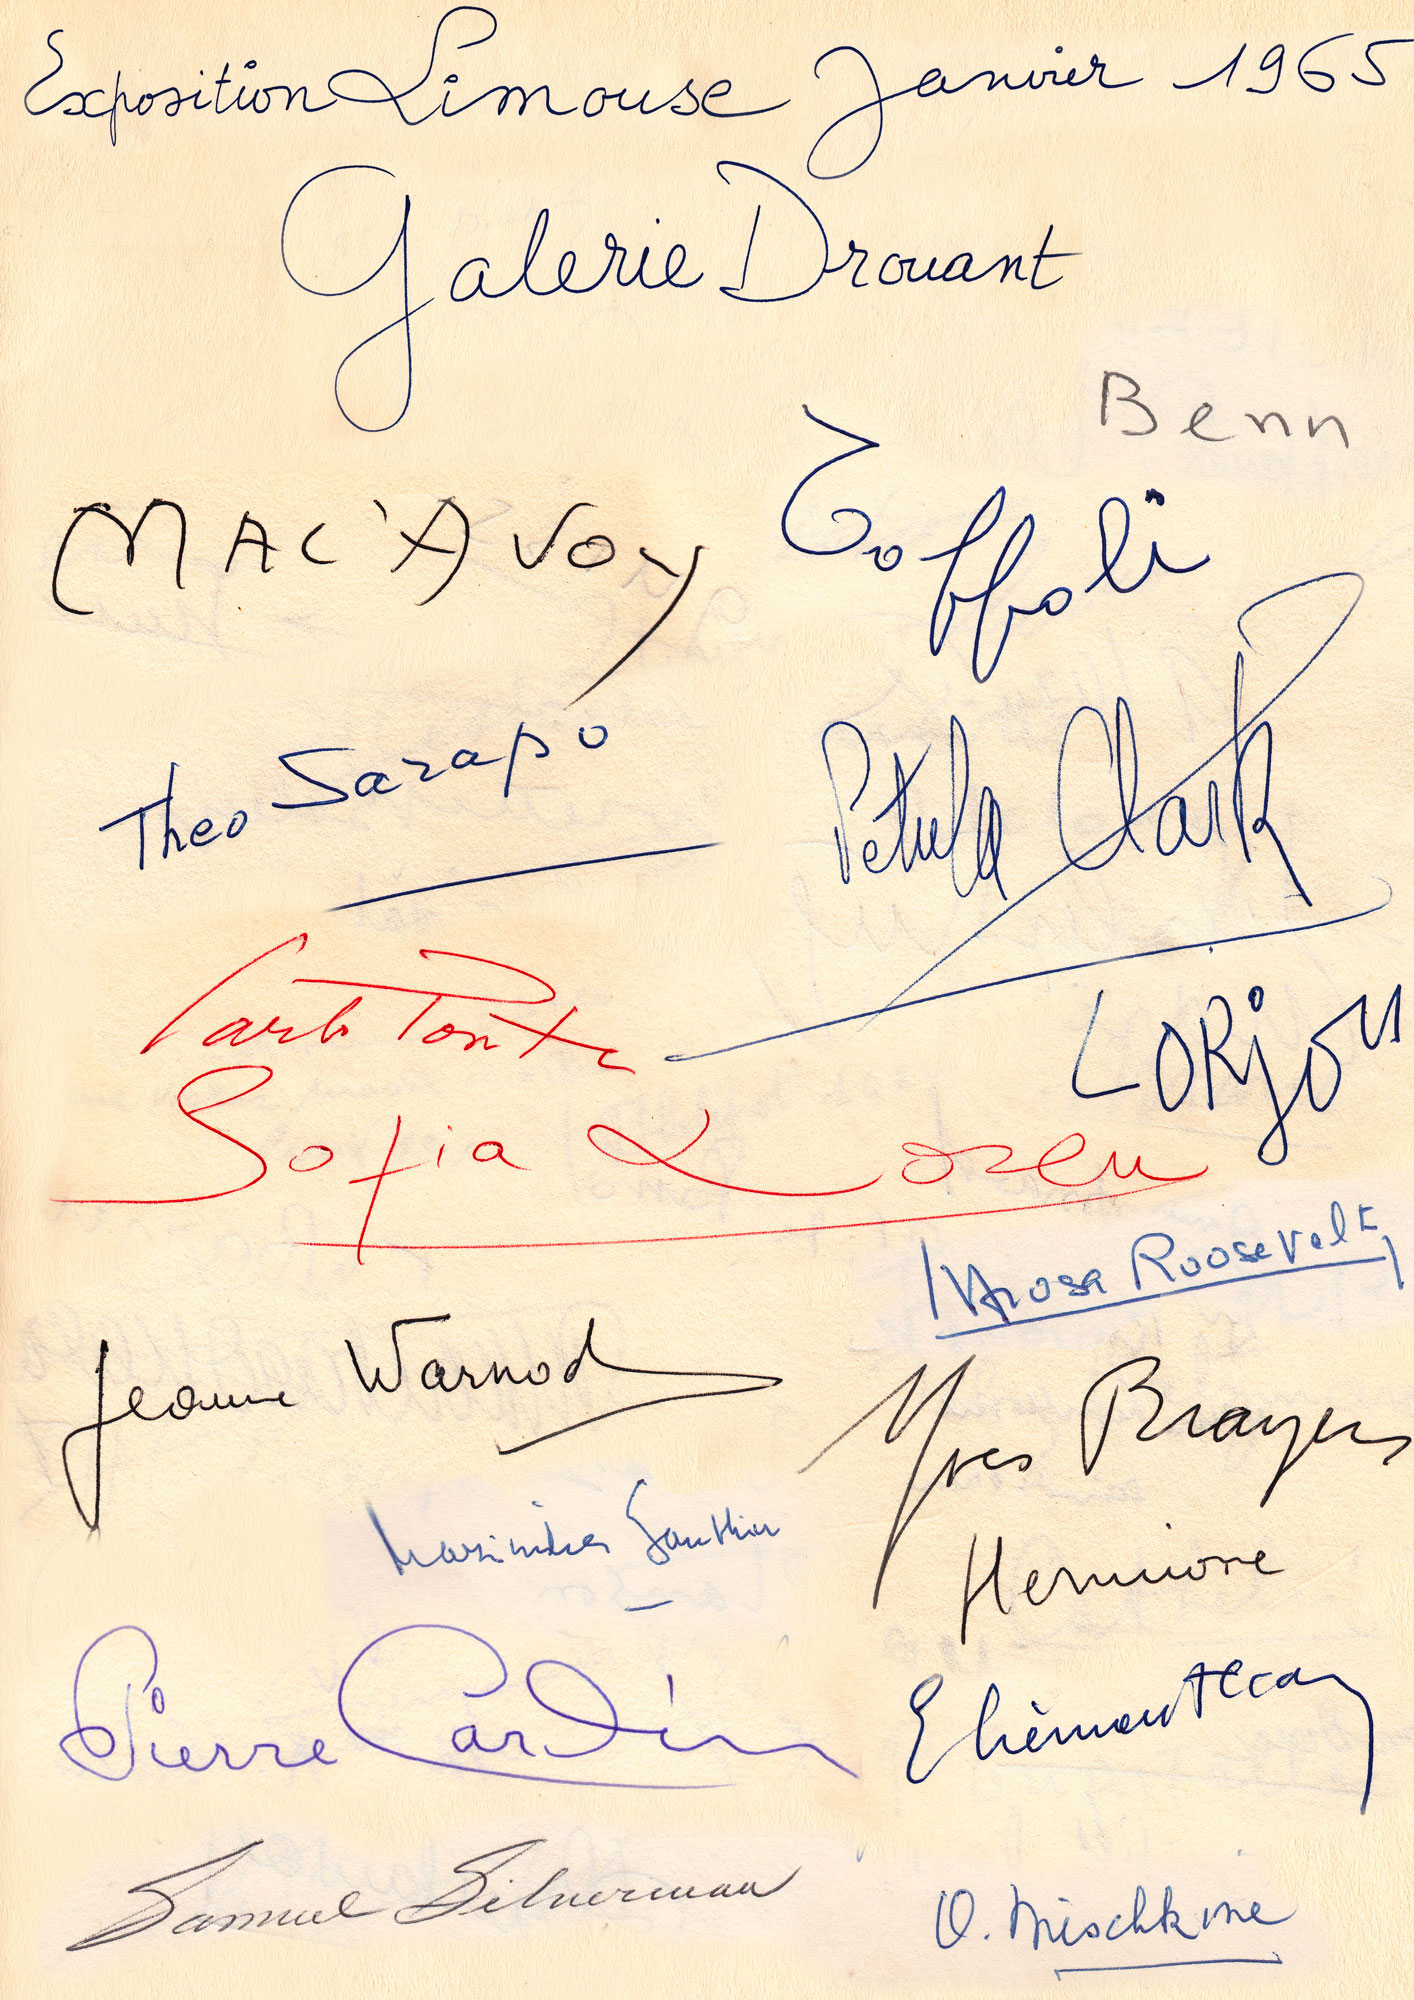 Exposition Limouse Janvier 1965
Galerie Drouant
Benn
MAC'AVOY
Toffoli
Theo Sarapo
Petula Clark
Carlo Ponti
LORJOU
Sofia Loren
Roosevelt
Jeanne Warnod
Yves Brayer
Maximilien Gauthier
Hermione
Pierre Cardin
Samuel Silverman
O. Mischkine